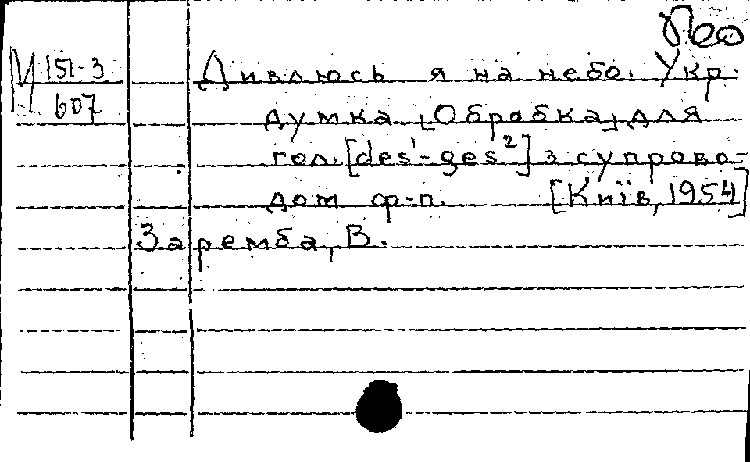 Пео
М 151-3
607
Дивлюсь я на небо. Укр.
думка [Обробка] для
гол. [des¹-ges²] з супрово-
дом ф-п. [Київ, 1954]
Заремба, В.